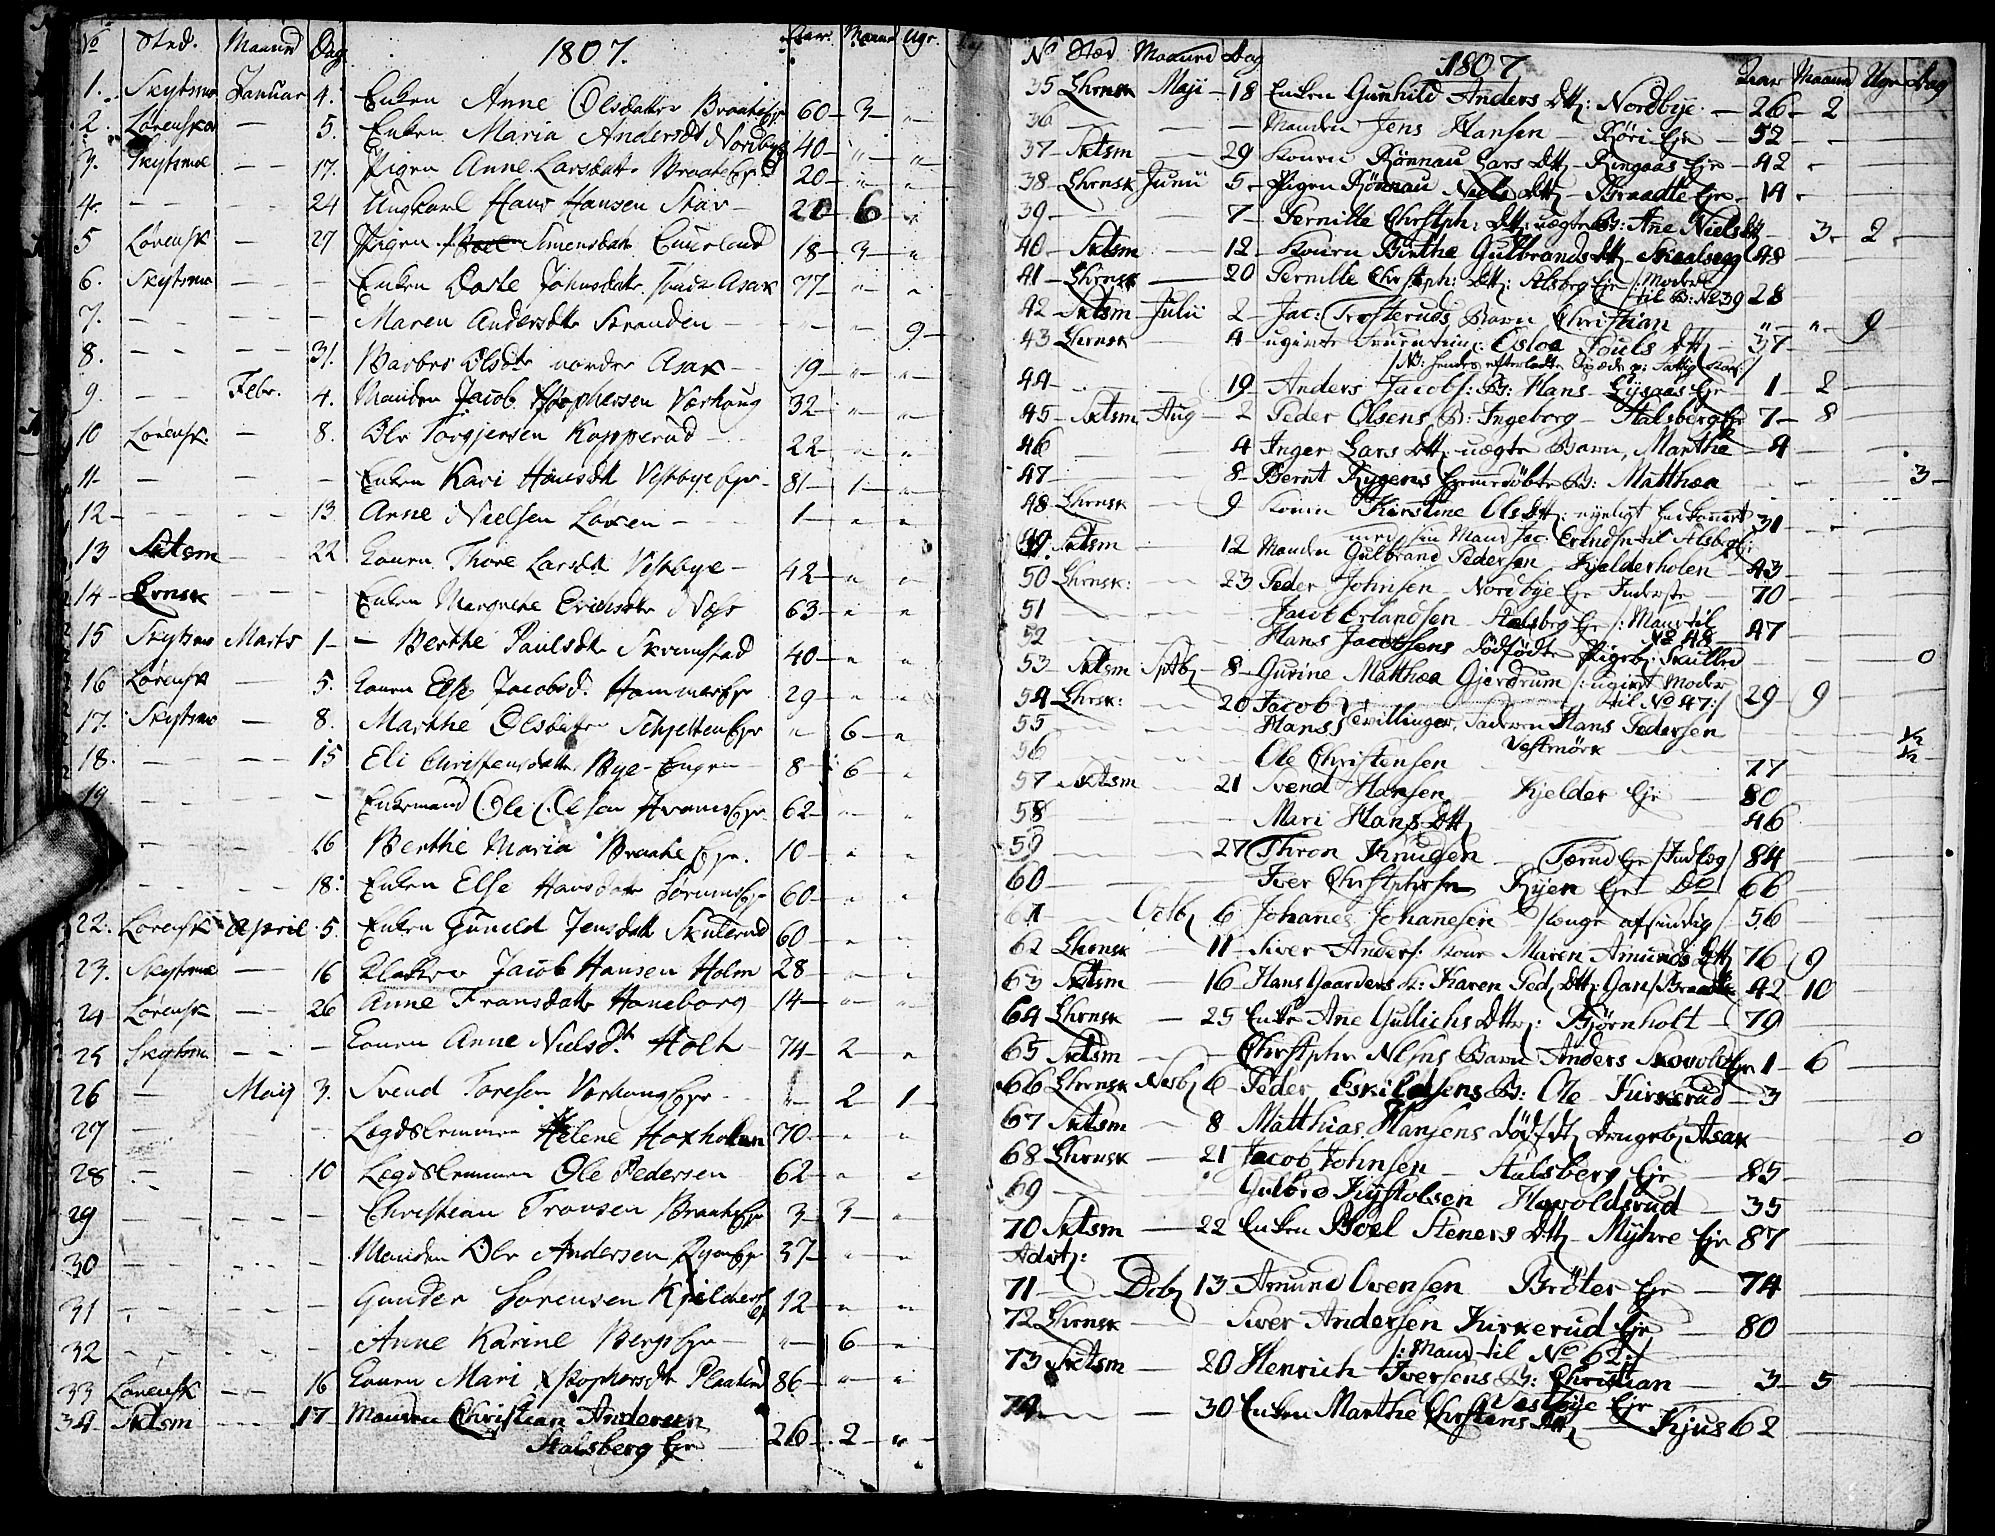 No Sted. Maaned Dag 1807. Aar. Maan Uge
1. Skytsmo Januar 4. Enken Anne Olsdatter Braate Eje 60 - 3 - "
2. Lørensko - 5. Enken Maria Andersdt Nordbye 40 - " - "
3. Skytsmoe - - 17. Pigen Anne Larsdatt. Braate Eje 20 - " "
4. - - - - 24 Ungkarl Hans Hansen Skar - 20 6 "
5 Lørensk - 27 Pigen Simensdatt. 18 - 3 - "
6. Skytsmo - - - Enken Dorte Johnsdatt. Asak 77 - " "
7. - - - - Maren Andersdtr Stranden - " - " 9 -
8. - - 31. Barbro Olsdtr nordre Asak - 19 - " "
9. - - Febr. 4. Manden Jacob Xstophersen Værhoug 32 - " "
10 Lørensk. - 8. Ole Torgjersen Kopperud - 22 - " "
11 - - - - Enken Kari Hansdt Vestbye Eje 81 - 1 - "
12 - - - 13 Anne Nielsen Løken - - 1 - " "
13 Sktsm - - 22 Konen Thore Larsdt Vestbye - 42 - " "
14 - Lrnsk - - - Enken Margrethe Erichsdtr Næss 63 - " "
15 Skytsmo Marts 1 - - Berthe Paulsdtr Skrimstad 40 - " "
16 Lørensk - 5. Konen Else Jacobsd. Hammer Eje 29 - " "
17. Skytsmo - 8. Marthe Olsdatter Schjetten Eje " 6 - "
18. - - - - 15 Eli Christensdatt. Bye - Engen 8 - 6 - "
19 - - - - Enkemand Ole Olsen Eje 62 - " "
- - 16 Berthe Maria Braate Eje. 10 - " "
- - - 18. Enken Else Hansdatr Sørums Eje 60 - " "
22. Lørensk April 5. Enken Guneld Jensdatt Skulerud 60 - " "
23. Skytsmoe - 16 Jacob Hansen Holm 28 - " "
24 Lørensk - 26 Anne Fransdatt Haneborg 14 - " "
25 Skytsm - - - Konen Anne Nielsdt. Holt 74 - 2 - "
26 - Maij 3. Svend Toresen Vorhoug Eje - " - 2 - 1 -
27 - - - - Lægdslemmen Helene Hoxholen 70 - " "
28 - - 10 Lægdslemmen Ole Pedersen 62 - " "
29 - - - - Christian Fransen Braate Eje 3 - 3 - "
30 - - - - Manden Ole Andersen Ryen Eje 37 - " "
31 - - - Gunder Sørensen Kjelder Eje 12 - " "
32 - - - - Anne Karine Bergs Eje - " - 6 - "
33 Lørensk - - 16 Konen Mari Xstophersdt. 86 - " "
34 Sktsm - - 17 Manden Christian Andersen
Stalsberg Eje - 26 - 2 - " -
No Sted Maaned Dag 1807 Aar Maaned Uge Dag
35 Lhrnsk Maji - 18 Enken Gunhild Anders Dtt: Nordbye - 26 - 2
36 - - - - Manden Jens Hansen - Eje - 52 - -
37 - Sktsm - 29 Konen Rønnau Lars Dtt - Ringaas Eje - 42 -
38. Lhrnsk Junii 5 - Pigen Rønnau Niels Dtt - Braadte Eje - 14 -
39 - - - 7 - Pernille Chrstph: Dtt: uægte B: Ane Niels Dt - 3 - 2 -
40 - Sktsm - 12 - Konen Birthe Gulbrands Dtt - 48
41 - Lhrnsk - 20 Pernille Chrstph: Dtt: Stalsberg Eje /: Moder
til B: No 39 28
42 - Sktsm Julii 2 - Jac: Trosteruds Barn Christian " - " - 9
43 Lhrnsk - 4 ugivte Esloe Pouls Dtt - 37 -
/: NB: hendes efterladte :/
44 - - - 19 - Anders Jacobs: B: Hans - Eje - 1 - 2
45 - Sktsm Aug - 2 - Peder Olsens B: Ingeborg - Stalsberg Eje 7 - 8
46 - - 4 Inger Lars Dtt: uægte Barn, Marthe - 4
47 - - 8 - Bernt Rygens hjemedøbte B: Matthea - - 3 -
48 Lhrnsk - 9 Konen Kirstine Ols Dtt: nyeligt 31 -
med sin Mand Jac: Erlndsn til Stalsberg
49. Sktsm - 12 Manden Gulbrand Pedersen Kjelderholen - 43
50 Lhrnsk: - 23 Peder Johnsen Nordbye Eje Inderste - 70
51 - - Jacob Erlandsen - Stalsberg Eje /: Mand til
No 48 - 47
52 - - Hans Jacobsens dødfødte Pigeb: Skullerud 0
53 - Sktsm Sptb. 8 - Gurine Matthea Gjerdrum /: ugivt Moder
til No 47:/ 29 - 9
54 Lhrsk: - 20 Jacob } Tvillinger, Faderen Hans Pedersen
55 Hans } Vestmörk ½
56 - - Ole Christensen - 77 ½
57 - Sktsm - 21 Svend Hansen - Kjelder Eje - 80
58 - - Mari Hans Dtt - 46
59 - - 27 Thron Knudsen - Tærud Eje /Indlæg/ 84
60 - - Iver Chrstphrsn Ryen Eje Do 66
61 - Octb. 6 Johanes Johanesen - længe afsindig - 56
62 Lhrnsk - 11 - Siver Anders: Kone Maren Amunds Dtt 76 9
63 Sktsm - 16 Hans Gaarders K: Karen Ped. Dtt: Gan/Braadte 42 - 10
64 Lhrnsk - 25 Enke Ane Gullichs Dttr: Bjørnholt - 79
65 Sktsm - - Chrstphr Nlsns Barn Anders Eje 1 - 6
66 Lhrnsk Novb. 6 - Peder Eskildsens B: Ole - Kirkerud - 3
67 - Sktsm - 8 Matthias Hansens dødfdt Drengeb Asak - 0
68 Lhrnsk - 21 Jacob Johnsen - Stalsberg Eje - 85 -
69 - - Gulbrd Kjystolsen Haroldsrud - 35
70 Sktsm - 22 Enken Boel Steners Dtt - Myhre Eje 87
Advt:
71 - Dcb. 13 - Amund Ovensen Bröter Eje - 74
72 Lhrnsk - - Siver Andersen Kirkerud Eje - 80
/: Mand til No 62 :/
73 Sktsm - 20 Henrich Iversens B: Christian - 3 - 5
Vestbye Eje
74 - - 30 Enken Marthe Chrstens Dtt - Kjus 62